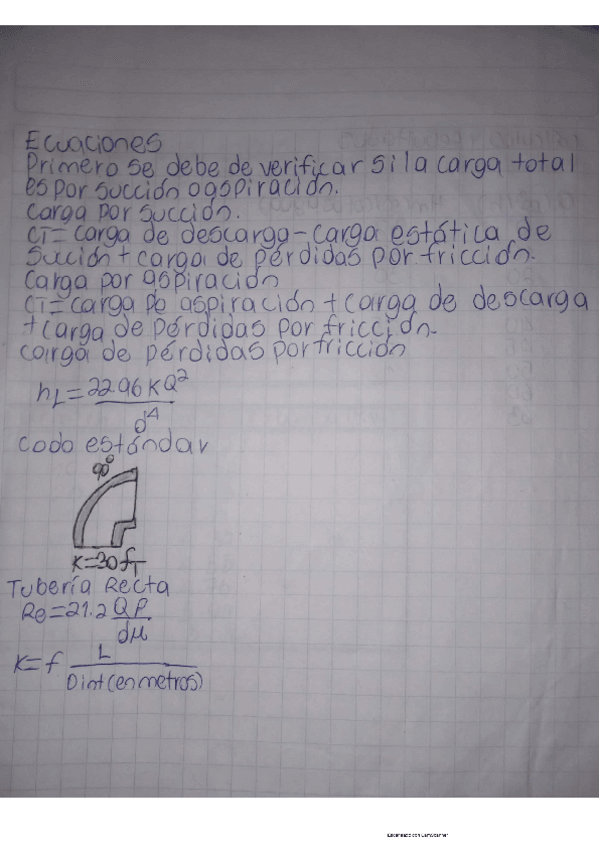 Ecuaciones
Primero se debe de verificar si la carga total
es por succión o aspiración.
Carga por succión.
CT = carga de descarga - carga estática de
Succión + carga de pérdidas por fricción.
Carga por aspiración
CT = carga de aspiración + carga de descarga
+ carga de pérdidas por fricción.
carga de pérdidas por fricción
hL = 22.96 K Q²
d⁴
Codo estándar
90°
K=30 fT
Tubería Recta
Re = 21.2 Qρ
dμ
K = f L
D int (en metros)
Escaneado con CamScanner